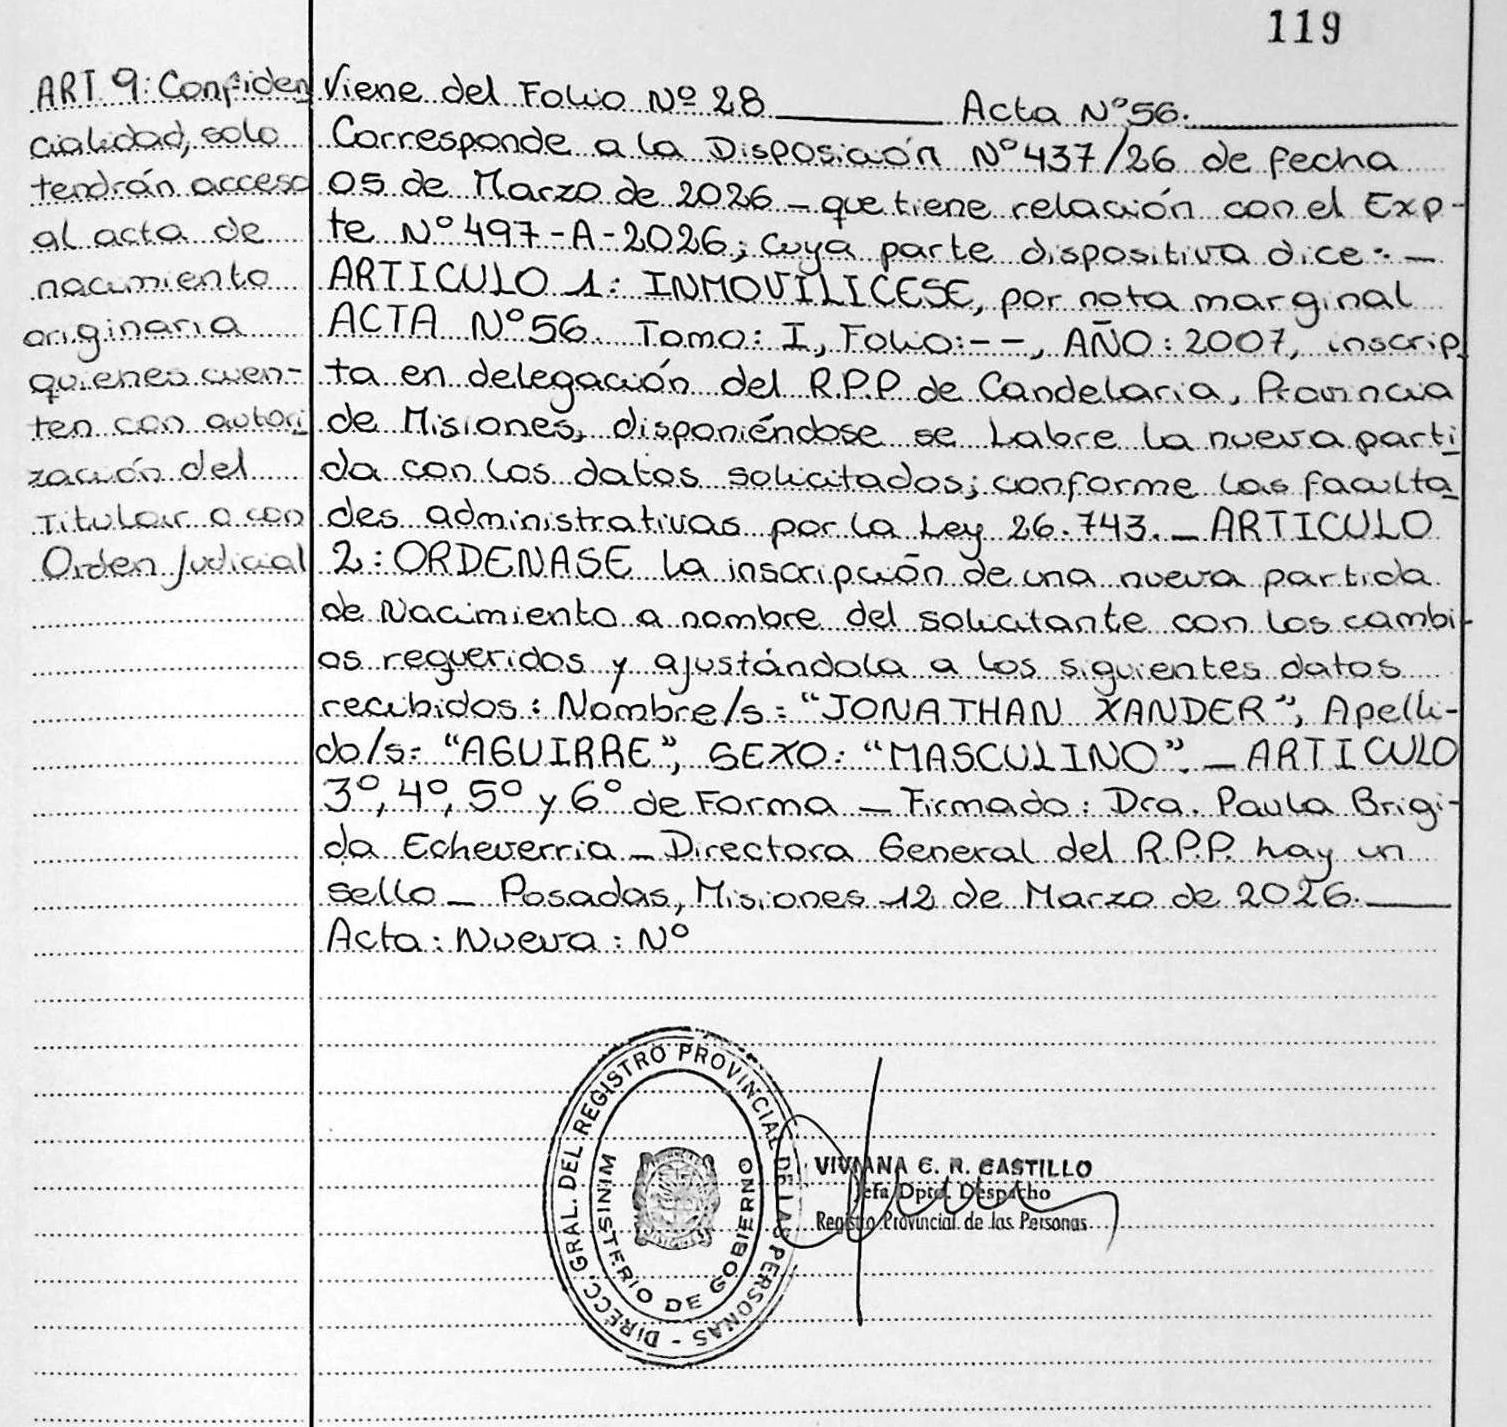 119
ART 9: Confiden
cialidad, solo
tendrán acceso
al acta de
nacimiento
originaria
quienes cuen-
ten con autori
zación del
Titular o con
Orden Judicial
Viene del Folio Nº 28 Acta N° 56.
Corresponde a la Disposición N° 437/26 de fecha
05 de Marzo de 2026 - que tiene relación con el Exp-
te N° 497-A-2026; cuya parte dispositiva dice: -
ARTICULO 1: INMOVILICESE, por nota marginal
ACTA N° 56. Tomo: I, Folio: --, AÑO: 2007, inscrip
ta en delegación del R.P.P de Candelaria, Provincia
de Misiones, disponiéndose se Labre la nueva parti
da con los datos solicitados; conforme las faculta
des administrativas por la Ley 26.743. - ARTICULO
2: ORDENASE la inscripción de una nueva partida
de Nacimiento a nombre del solicitante con los cambi-
os requeridos y ajustándola a los siguientes datos
recibidos: Nombre/s: "JONATHAN XANDER", Apelli-
do/s: "AGUIRRE", SEXO: "MASCULINO". - ARTICULO
3º, 4º, 5º y 6º de Forma - Firmado: Dra. Paula Brigi-
da Echeverria - Directora General del R.P.P. hay un
sello - Posadas, Misiones 12 de Marzo de 2026.
Acta: Nueva: Nº
DIRECC. GRAL. DEL REGISTRO PROVINCIAL DE LAS PERSONAS -
MINISTERIO DE GOBIERNO
VIVIANA E. R. CASTILLO
Jefa Dpto. Despacho
Registro Provincial de las Personas